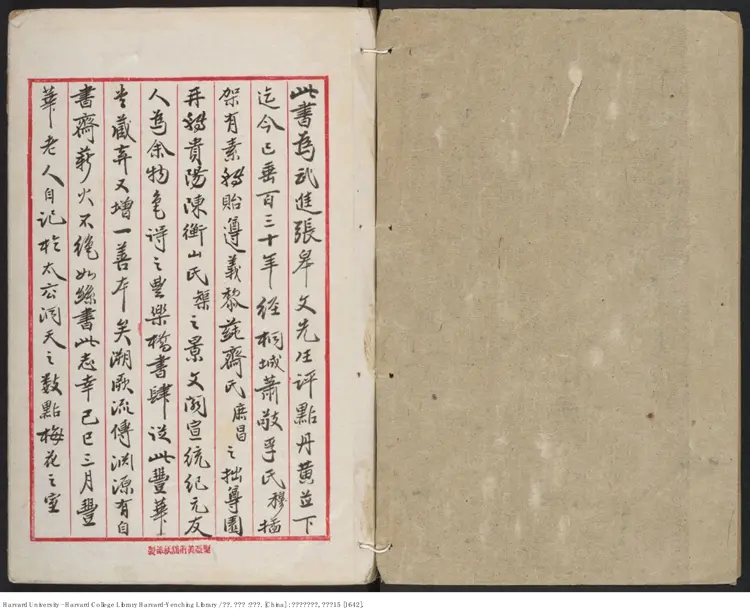 此書為武進張皋文先生評點丹黃並下
迄今已垂百三十年經桐城蕭敬孚氏穆插
架有素歸貽遵義黎蒓齋氏庶昌之拙尊園
再歸貴陽陳衡山氏榘之景文閣宣統紀元友
人為余物色得之豐樂橋書肆從此豐華
堂藏弆又增一善本矣溯厥流傳淵源有自
書齋薪火不絕如絲書此志幸己巳三月豐
華老人自記於太玄洞天之數點梅花之室
Harvard University - Harvard College Library Harvard-Yenching Library / ??. ??? :???. [China] : ???????, ???15 [1642].